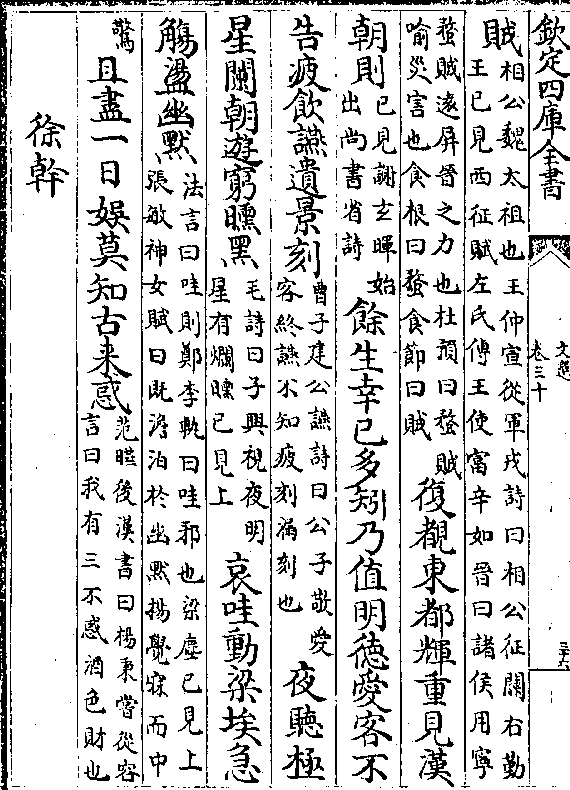 欽定四庫全書
文選
卷三十
賊
相公魏太祖也王仲宣從軍戎詩曰相公征關右勤
王已見西征賦左氏傳王使富辛如晉曰諸侯用寧
蝥賊遠屏晉之力也杜預曰蝥賊
喻災害也食根曰蝥食節曰賊
復覩東都輝重見漢
朝則
已見謝玄暉始
出尚書省詩
餘生幸已多矧乃值明德愛客不
告疲飲讌遺景刻
曹子建公讌詩曰公子敬愛
客終讌不知疲刻漏刻也
夜聽極
星闌朝遊窮曛黑
毛詩曰子興視夜明
星有爛曛已見上
哀哇動梁埃急
觴盪幽默
法言曰哇則鄭李軌曰哇邪也梁塵已見上
張敏神女賦曰既澹泊於幽默揚覺寐而中
驚
且盡一日娛莫知古来惑
范曄後漢書曰楊秉嘗從容
言曰我有三不惑酒色財也
徐幹